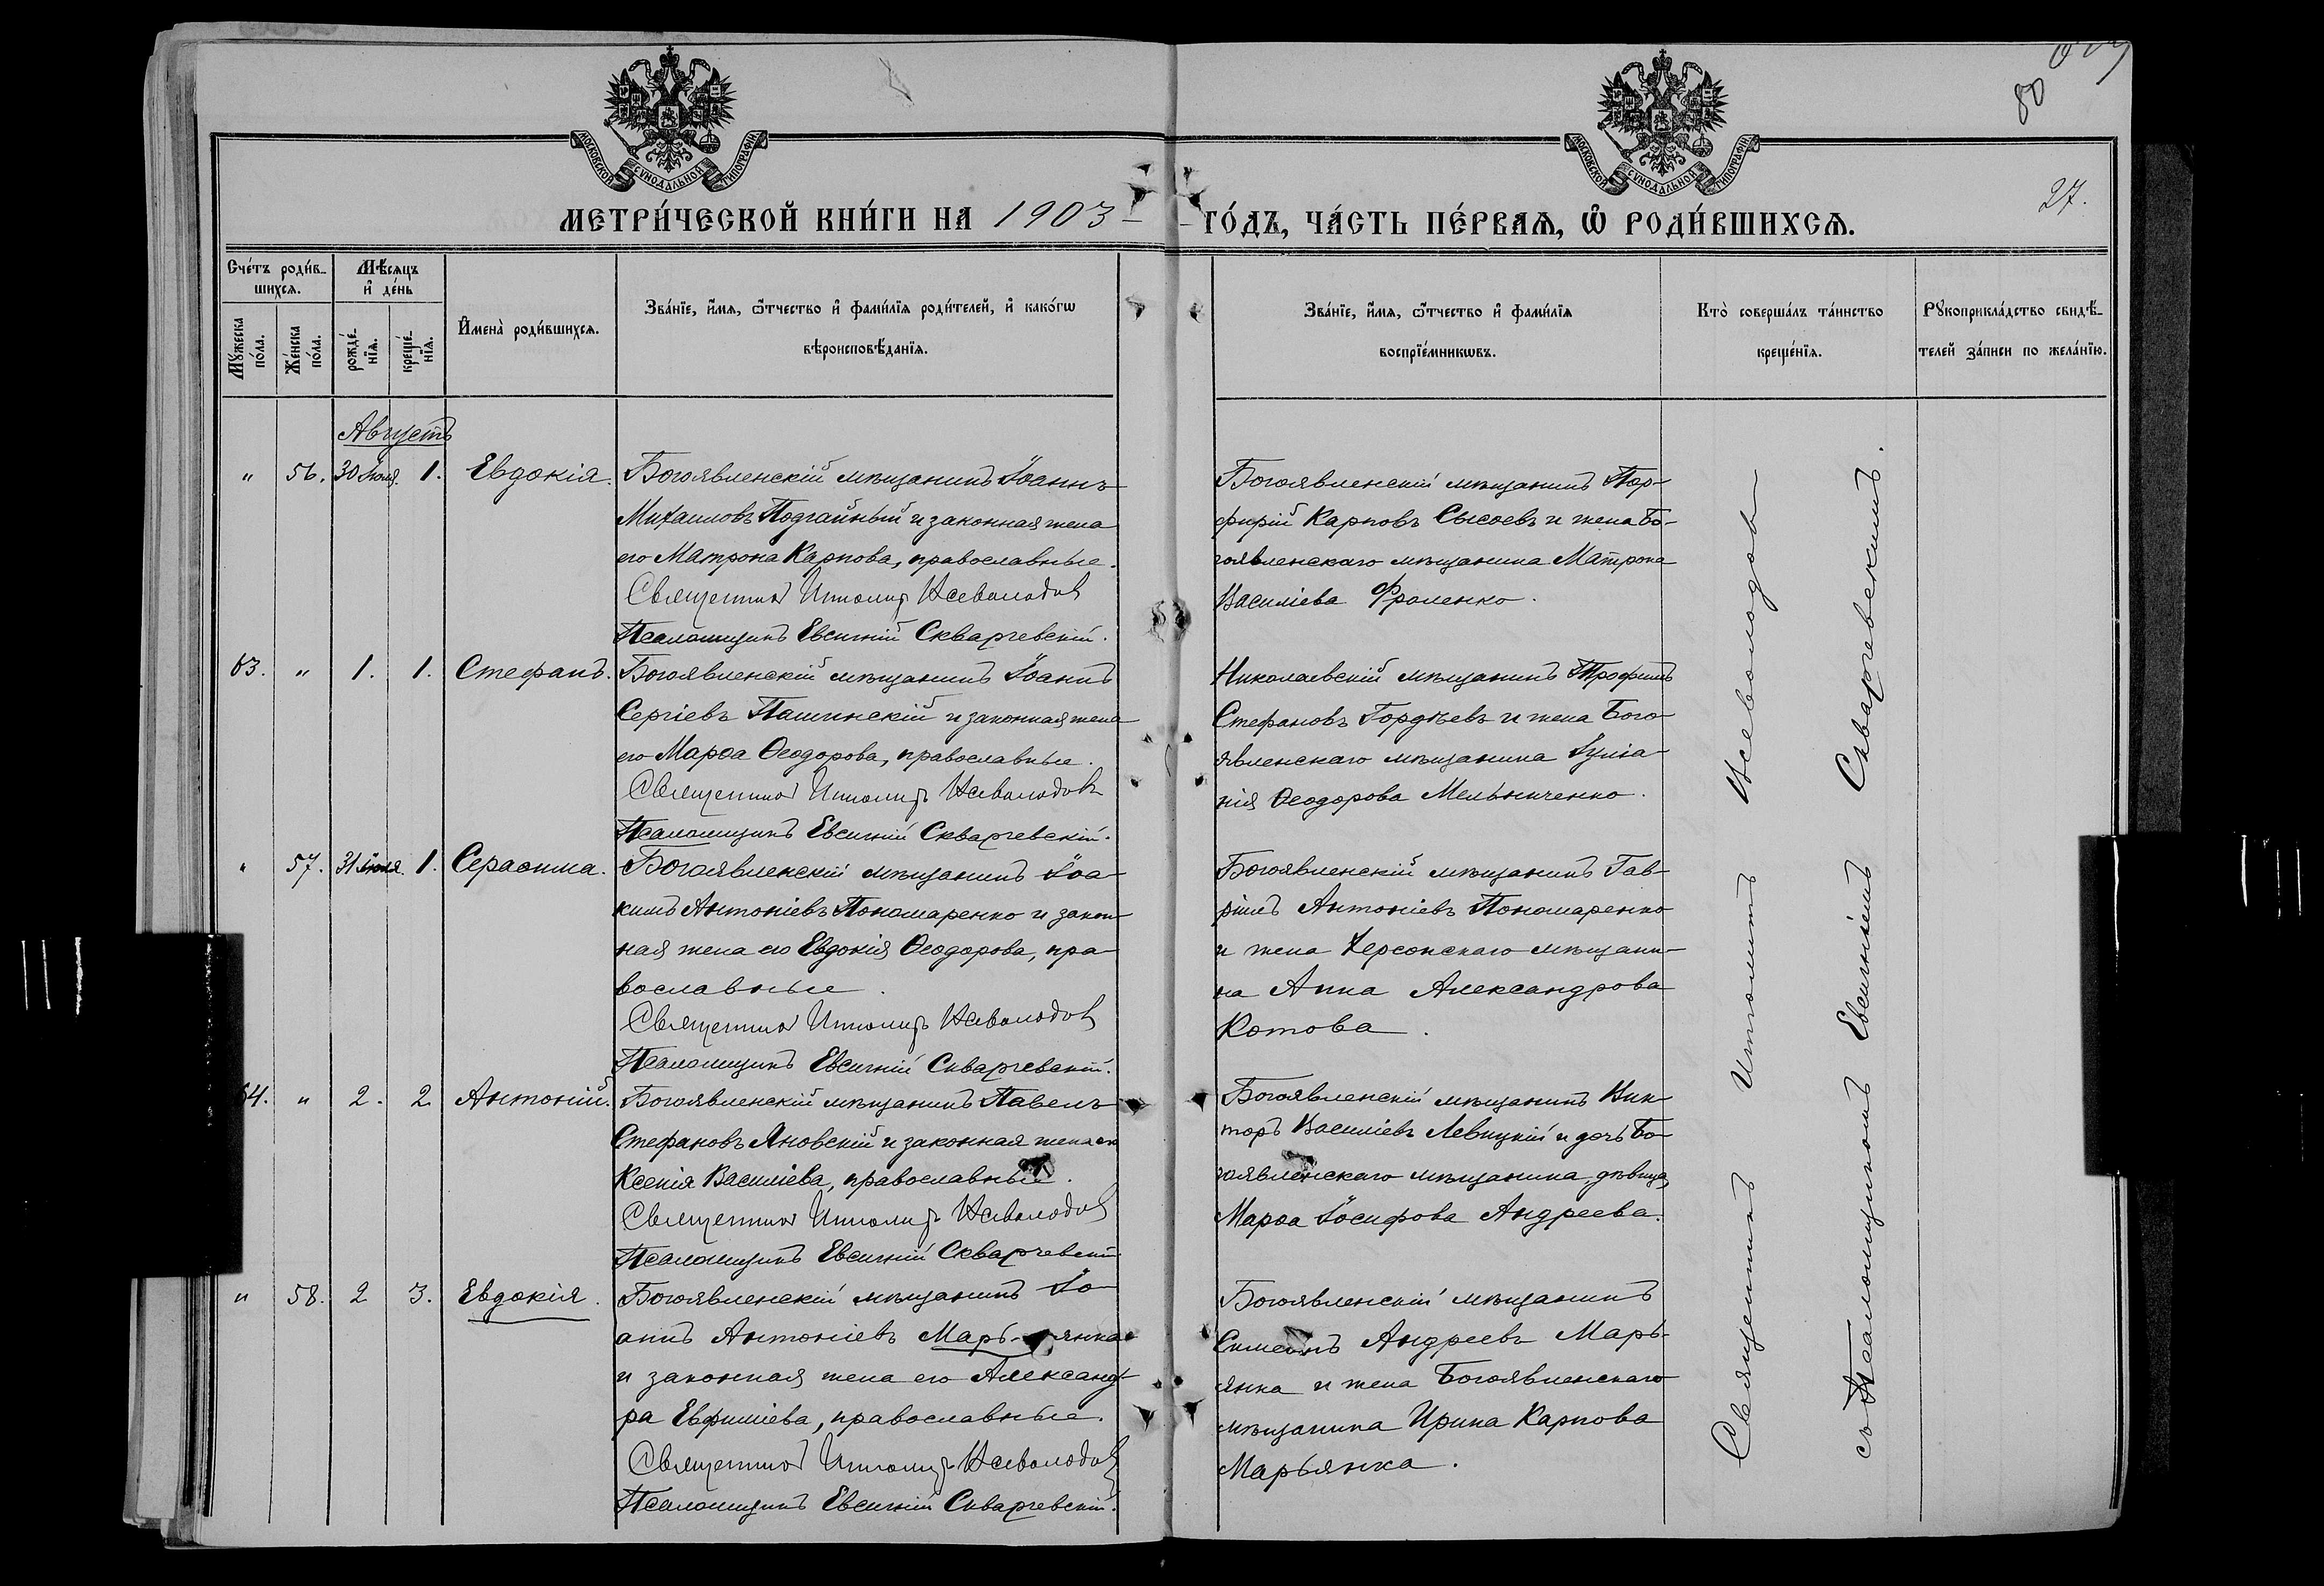 МОСКОВСКОЙ СѴНОДАЛЬНОЙ ТИПОГРАФІИ
МОСКОВСКОЙ СѴНОДАЛЬНОЙ ТИПОГРАФІИ
80
27.
МЕТРИ́ЧЕСКОЙ КНИ́ГИ НА 1903 – ГО́ДЪ, ЧА́СТЬ ПЕ́РВАѦ, Ѡ҆ РОДИ́ВШИХСѦ.
Сче́тъ роди́в-
шихсѧ.
Мѣ́сѧцъ
и҆ де́нь
Мꙋ́жеска
по́ла.
Же́нска
по́ла.
рожде́-
нїѧ.
креще́-
нїѧ.
И҆мена̀ роди́вшихсѧ.
Зва́нїе, и҆́мѧ, ѻ҆́тчество и҆ фами́лїѧ роди́телей, и҆ како́гѡ
вѣроисповѣ́данїѧ.
Зва́нїе, и҆́мѧ, ѻ҆́тчество и҆ фами́лїѧ
воспрїе́мникѡвъ.
Кто̀ соверша́лъ та́инство
креще́нїѧ.
Рꙋкоприкла́дство свидѣ́-
телей за́писи по жела́нїю.
Августъ
" 56. 30 Іюля. 1. Евдокія. Богоявленскій мѣщанинъ Іоаннъ
Михаиловъ Подгайный и законная жена
его Матрона Карпова, православные.
Священникъ Ипполитъ Всеволодовъ
Псаломщикъ Евсигній Скварчевскій.
Богоявленскій мѣщанинъ Пор-
фирій Карповъ Сысоевъ и жена Бо-
гоявленскаго мѣщанина Матрона
Василіева Фроленко.
63. " 1. 1. Стефанъ. Богоявленскій мѣщанинъ Іоаннъ
Сергіевъ Пашинскій и законная жена
его Марѳа Ѳеодорова, православные.
Священникъ Ипполитъ Всеволодовъ
Псаломщикъ Евсигній Скварчевскій.
Николаевскій мѣщанинъ Трофимъ
Стефановъ Гордѣевъ и жена Бого-
явленскаго мѣщанина Іуліа-
нія Ѳеодорова Мельниченко.
" 57. 31 Іюля. 1. Серафима. Богоявленскій мѣщанинъ Іоа-
кимъ Антоніевъ Пономаренко и закон-
ная жена его Евдокія Ѳеодорова, пра-
вославные.
Священникъ Ипполитъ Всеволодовъ
Псаломщикъ Евсигній Скварчевскій.
Богоявленскій мѣщанинъ Гав-
ріилъ Антоніевъ Пономаренко
и жена Херсонскаго мѣщани-
на Анна Александрова
Котова.
64. " 2. 2. Антоній. Богоявленскій мѣщанинъ Павелъ
Стефановъ Яновскій и законная жена его
Ксенія Василіева, православные.
Священникъ Ипполитъ Всеволодовъ
Псаломщикъ Евсигній Скварчевскій
Богоявленскій мѣщанинъ Вик-
торъ Василіевъ Левицкій и дочь Бо-
гоявленскаго мѣщанина, дѣвица,
Марѳа Іосифова Андреева.
" 58. 2 3. Евдокія. Богоявленскій мѣщанинъ Іо-
аннъ Антоніевъ Марь-янка
и законная жена его Александ-
ра Евфиміева, православные.
Священникъ Ипполитъ Всеволодовъ
Псаломщикъ Евсигній Скварчевскій.
Богоявленскій мѣщанинъ
Симеонъ Андреевъ Марь-
янка и жена Богоявленскаго
мѣщанина Ирина Карпова
Марьянка.
Священникъ Ипполитъ Всеволодовъ
съ Псаломщикомъ Евсигніемъ Скварчевскимъ.